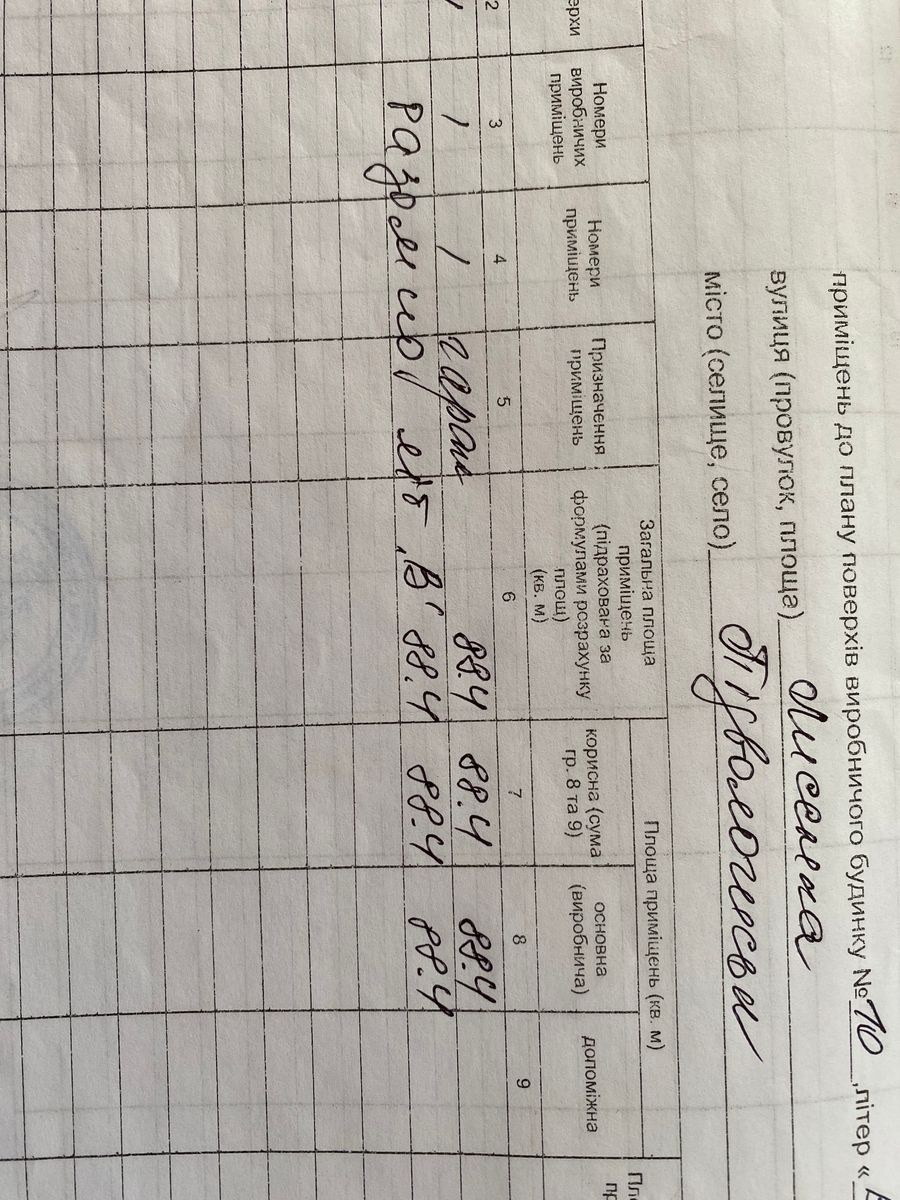 приміщень до плану поверхів виробничого будинку № 10 ,літер «
вулиця (провулок, площа)
місто (селище, село) Підволочиськ
Номери виробничих приміщень
Номери приміщень
Призначення приміщень
Загальна площа приміщень (підрахована за формулами розрахунку площ) (кв. м)
Площа приміщень (кв. м)
корисна (сума гр. 8 та 9)
основна (виробнича)
допоміжна
2 3 4 5 6 7 8 9
1 1 гараж 88.4 88.4 88.4
Разом по літ „В" 88.4 88.4 88.4